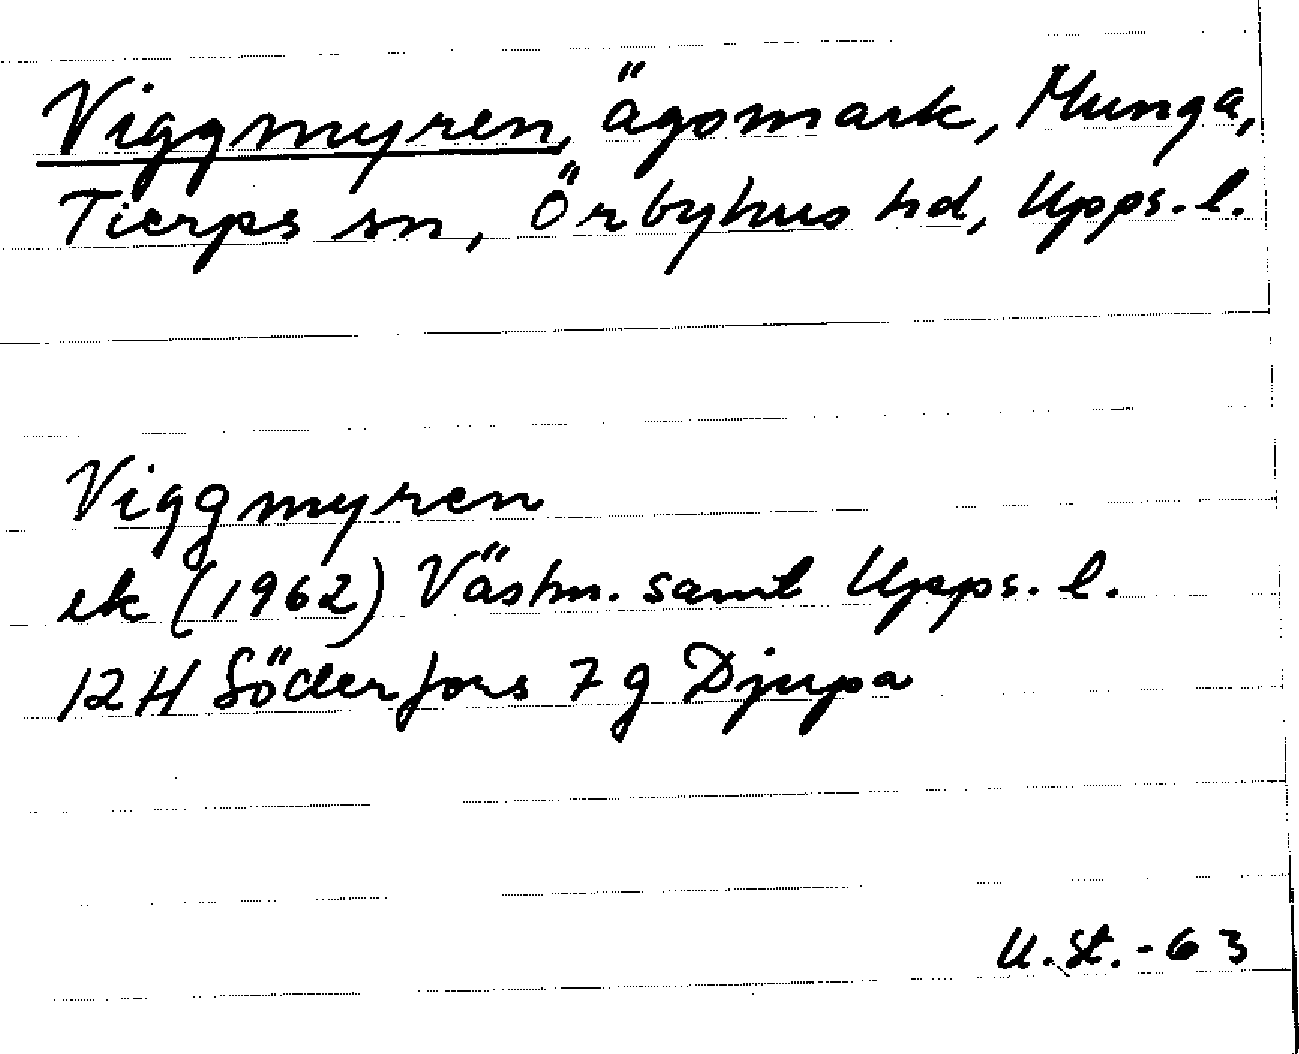 Viggmyren, ägomark, Munga,
Tierps sn, Örbyhus hd, Upps. l.
Viggmyren
ek (1962) Västm. samt Upps. l.
12 H Söderfors 7 g Djupa
U. St. - 63